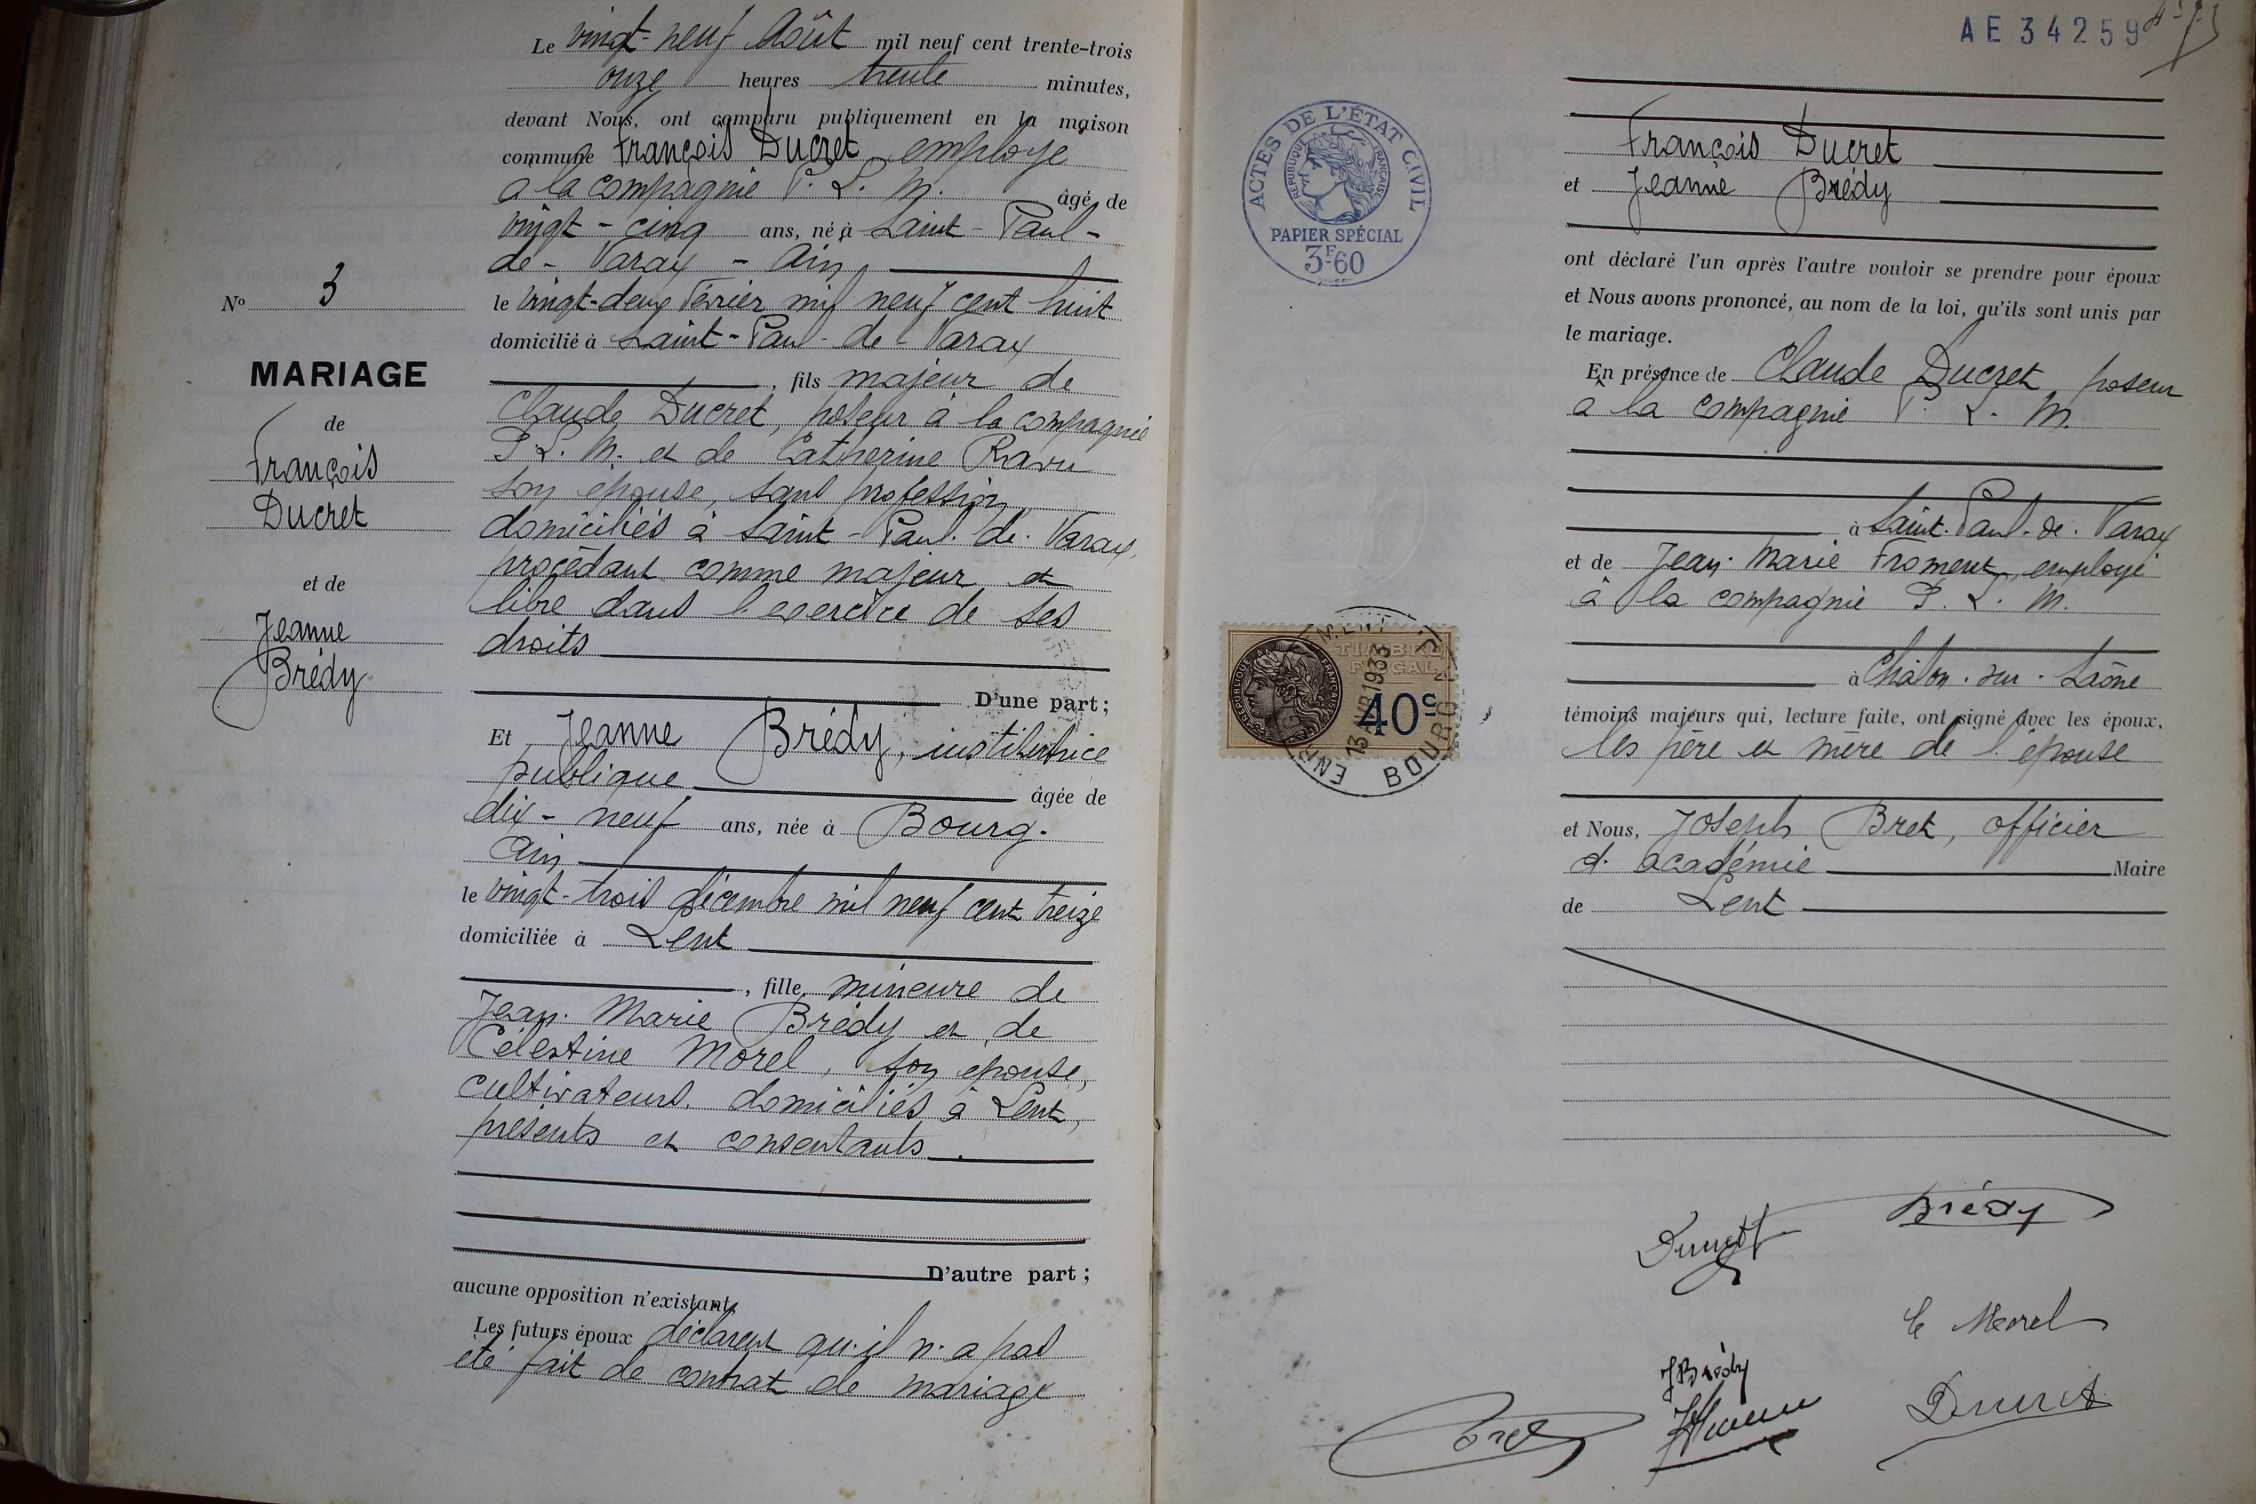 Le vingt-neuf Août mil neuf cent trente-trois
onze heures trente minutes,
devant Nous, ont comparu publiquement en la maison
commune François Ducret employé
à la compagnie P. L. M. âgé de
vingt-cinq ans, né à Saint-Paul-
de-Varax - Ain
le vingt-deux Février mil neuf cent huit
domicilié à Saint-Paul-de-Varax
, fils majeur de
Claude Ducret, poseur à la compagnie
P. L. M. et de Catherine Ravu
son épouse, sans profession
domiciliés à Saint-Paul-de-Varax,
procédant comme majeur et
libre dans l'exercice de ses
droits
D'une part ;
Et Jeanne Brédy, institutrice
publique âgée de
dix-neuf ans, née à Bourg-
Ain
le vingt-trois décembre mil neuf cent treize
domiciliée à Lent
, fille mineure de
Jean-Marie Brédy et de
Célestine Morel, son épouse,
cultivateurs domiciliés à Lent,
présents et consentants.
D'autre part ;
aucune opposition n'existant.
Les futurs époux déclarent qu'il n'a pas
été fait de contrat de mariage
No 3
MARIAGE
de
François
Ducret
et de
Jeanne
Brédy
AE 34259
ACTES DE L'ÉTAT CIVIL
RÉPUBLIQUE FRANÇAISE
PAPIER SPÉCIAL
3F60
TIMBRE
FISCAL
RÉPUBLIQUE FRANÇAISE
40c
13 AVR 1933
BOURG
François Ducret
et Jeanne Brédy
ont déclaré l'un après l'autre vouloir se prendre pour époux
et Nous avons prononcé, au nom de la loi, qu'ils sont unis par
le mariage.
En présence de Claude Ducret, poseur
à la compagnie P. L. M.
à Saint-Paul-de-Varax
et de Jean-Marie Froment, employé
à la compagnie P. L. M.
à Chalon-sur-Saône
témoins majeurs qui, lecture faite, ont signé avec les époux,
les père et mère de l'épouse
et Nous, Joseph Bret, officier
d'académie Maire
de Lent
Ducret
Brédy
C Morel
J Brédy
Ducret
Bret